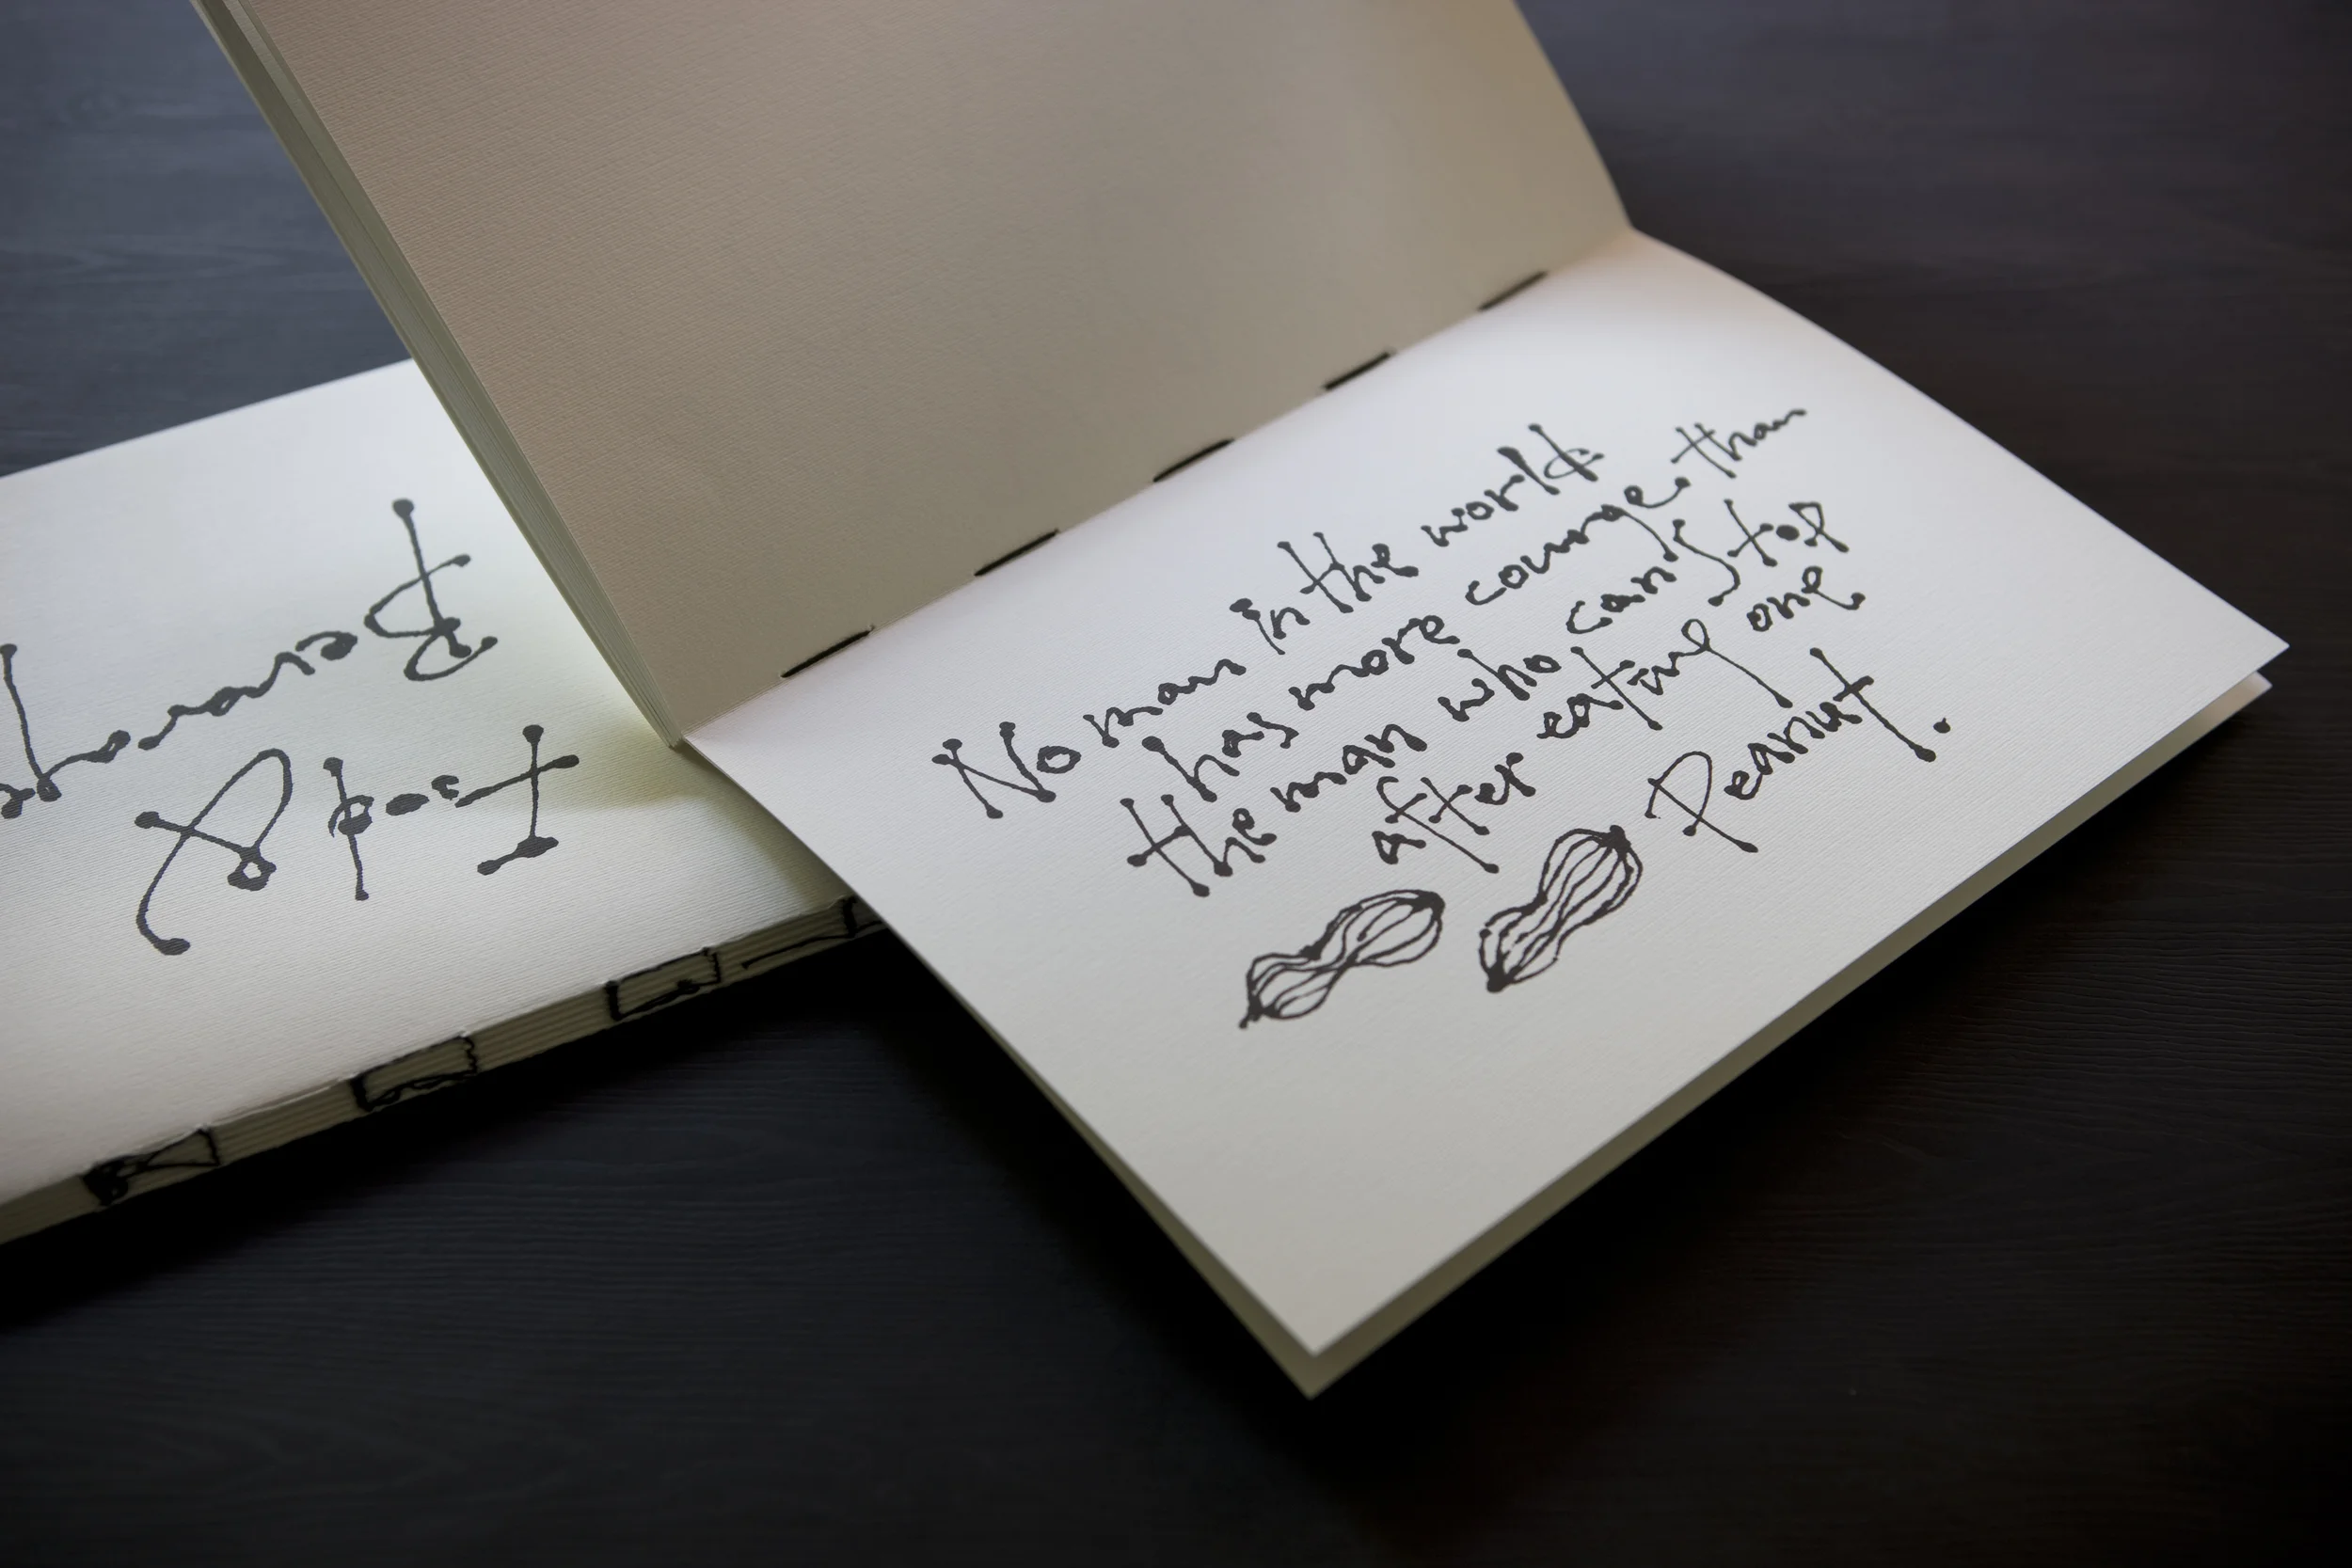 No man in the world
has more courage than
the man who can stop
after eating one
Peanut.
Food &
Beverage